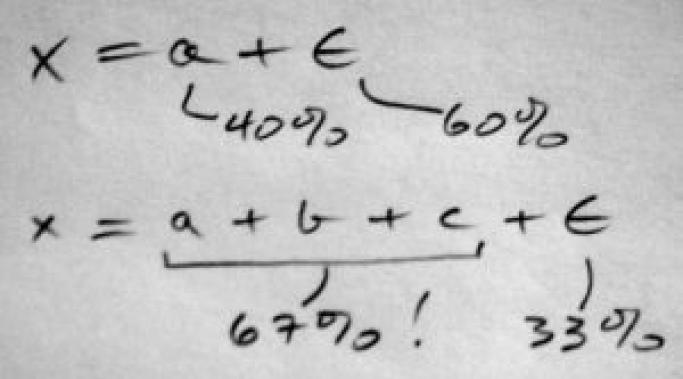 x = a + ϵ
40% 60%
x = a + b + c + ϵ
67%! 33%